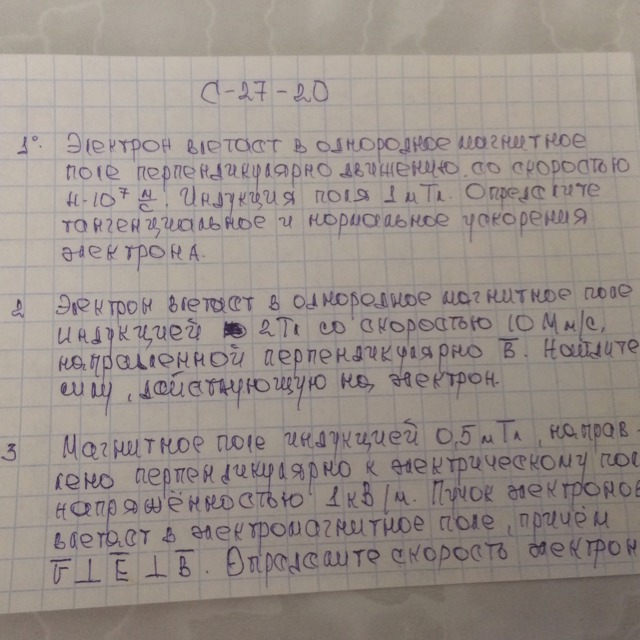 С-27-20
1°. Электрон влетает в однородное магнитное
поле перпендикулярно движению со скоростью
4·10⁷ м/с. Индукция поля 1 мТл. Определите
тангенциальное и нормальное ускорения
электрона.
2 Электрон влетает в однородное магнитное поле
индукцией 2Тл со скоростью 10 Мм/с,
направленной перпендикулярно B̅. Найдите
силу, действующую на электрон.
3 Магнитное поле индукцией 0,5 мТл, направ-
лено перпендикулярно к электрическому пол
напряжённостью 1кВ/м. Пучок электронов
влетает в электромагнитное поле, причём
⊥ E̅ ⊥ B̅. Определите скорость электрон